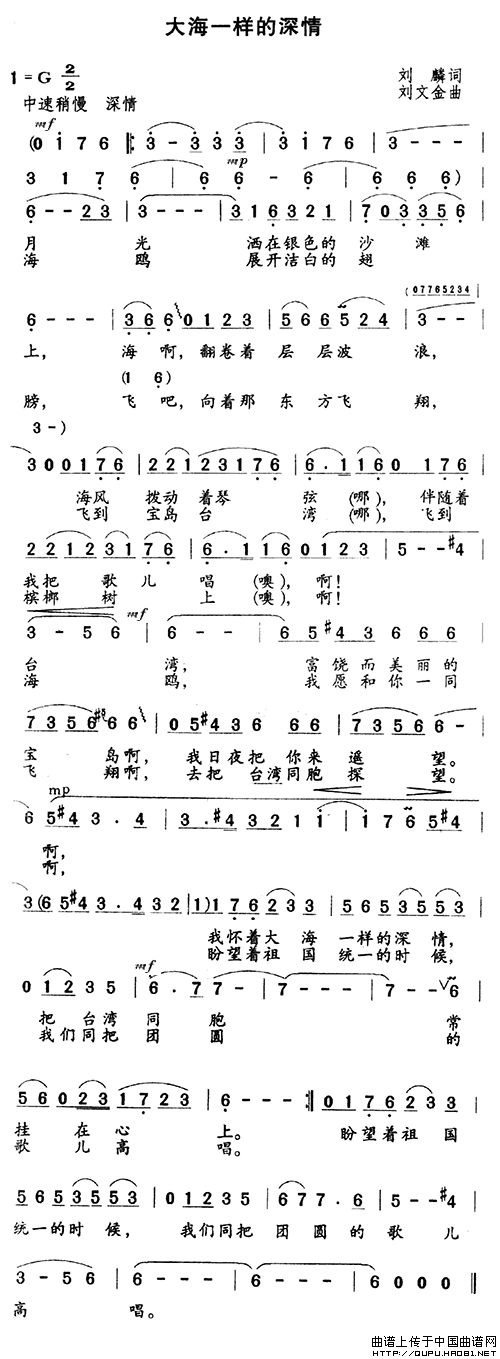 大海一样的深情
1=G 2/2
刘 麟词
中速稍慢 深情
刘文金曲
mf
(0 1 7 6 3 - 3 3 3 3 1 7 6 3 - - -
mp
3 1 7 6 6 6 - 6 6 6 6)
6 - - 2 3 3 - - - 3 1 6 3 2 1 7 0 3 3 5 6
月 光 洒在银色的 沙 滩
海 鸥 展开洁白的 翅
(0 7 7 6 5 2 3 4
6 - - - 3 6 6 0 1 2 3 5 6 6 5 2 4 3 - -
上, 海 啊, 翻卷着 层 层波 浪,
(1 6)
膀, 飞 吧, 向着那 东 方飞 翔,
3 -)
3 0 0 1 7 6 2 2 1 2 3 1 7 6 6 . 1 1 6 0 1 7 6
海风 拨动 着琴 弦 (哪), 伴随着
飞到 宝岛 台 湾 (哪), 飞到
2 2 1 2 3 1 7 6 6 . 1 1 6 0 1 2 3 5 - - #4
我把 歌儿 唱 (噢), 啊!
槟榔 树 上 (噢), 啊!
mf
3 - 5 6 6 - - 6 5 #4 3 6 6 6
台 湾, 富饶而美丽的
海 鸥, 我愿和你一同
7 3 5 6 #5 6 6 0 5 #4 3 6 6 6 7 3 5 6 6 -
宝 岛啊, 我日夜把 你来 遥 望。
飞 翔啊, 去把 台湾同胞 探 望。
mp
6 5 #4 3 . 4 3 . 3 . #4 3 2 1 1 1 7 6 5 #4
啊,
啊,
3 (6 5 #4 3 . 4 3 2 1) 1 7 6 2 3 3 5 6 5 3 5 5 3
我怀着大 海 一样的深 情,
盼望着祖 国 统一的时 候,
mf
0 1 2 3 5 6 . 7 7 - 7 - - - 7 - - 6
把 台湾 同 胞 常
我们同把 团 圆 的
5 6 0 2 3 1 7 2 3 6 - - - 0 1 7 6 2 3 3
挂 在 心 上。 盼望着祖 国
歌 儿 高 唱。
5 6 5 3 5 5 3 0 1 2 3 5 6 7 7 . 6 5 - - #4
统一的时 候, 我们同把 团 圆 的 歌 儿
3 - 5 6 6 - - - 6 - - - 6 0 0 0
高 唱。
曲谱上传于中国曲谱网
HTTP://QUPU.HAO81.NET